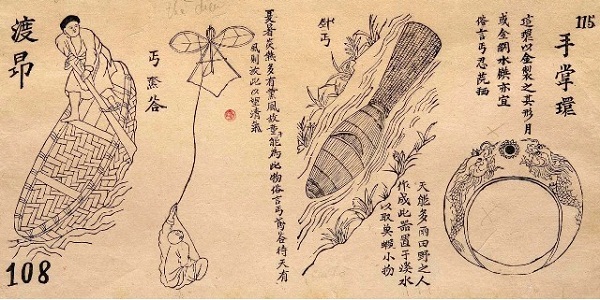 115
手掌環
這環以金製之其形月
或金銅水鉄亦宜
俗言丐忍
丐
天能多雨田野之人
作成此器置于溪水
以取魚蝦小物
夏暑炎熱多有薰風放童能為此物俗言丐待天有
風則放此以望清氣
丐
渡昂
108